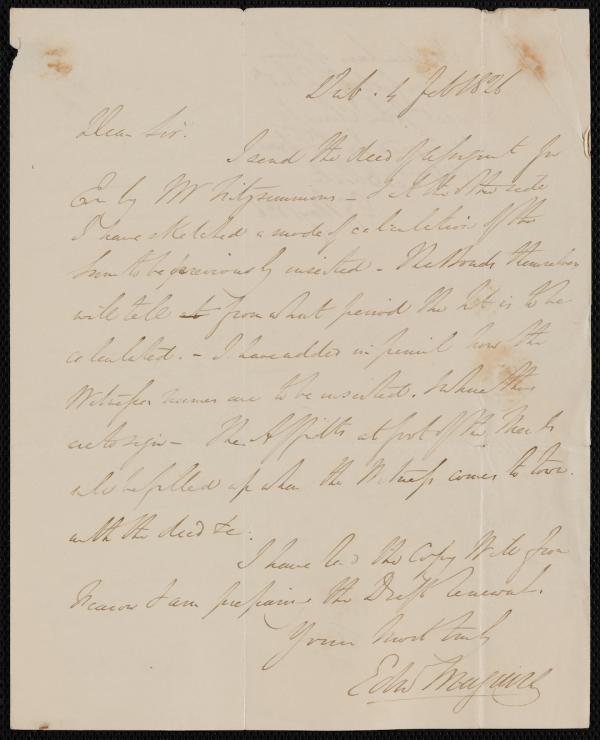 Dub. 4 Feb 1826
Dear Sir.
I send the deed of Assignmt for
Exn by Mr Fitzsimmons – & at the other side
I have sketched a mode of calculation of the
Sum to be previously inserted – The Bonds themselves
will tell from what period the Int is to be
calculated. – I have added in pencil how the
Witnesses names are to be inserted. & where they
are to sign – The Affidts at foot of the
will be filled up when the Witness comes to town
with the deed &c.
I have the Copy Will from
& am preparing the Draft Renewal.
Yours most truly
Edwd Maguire